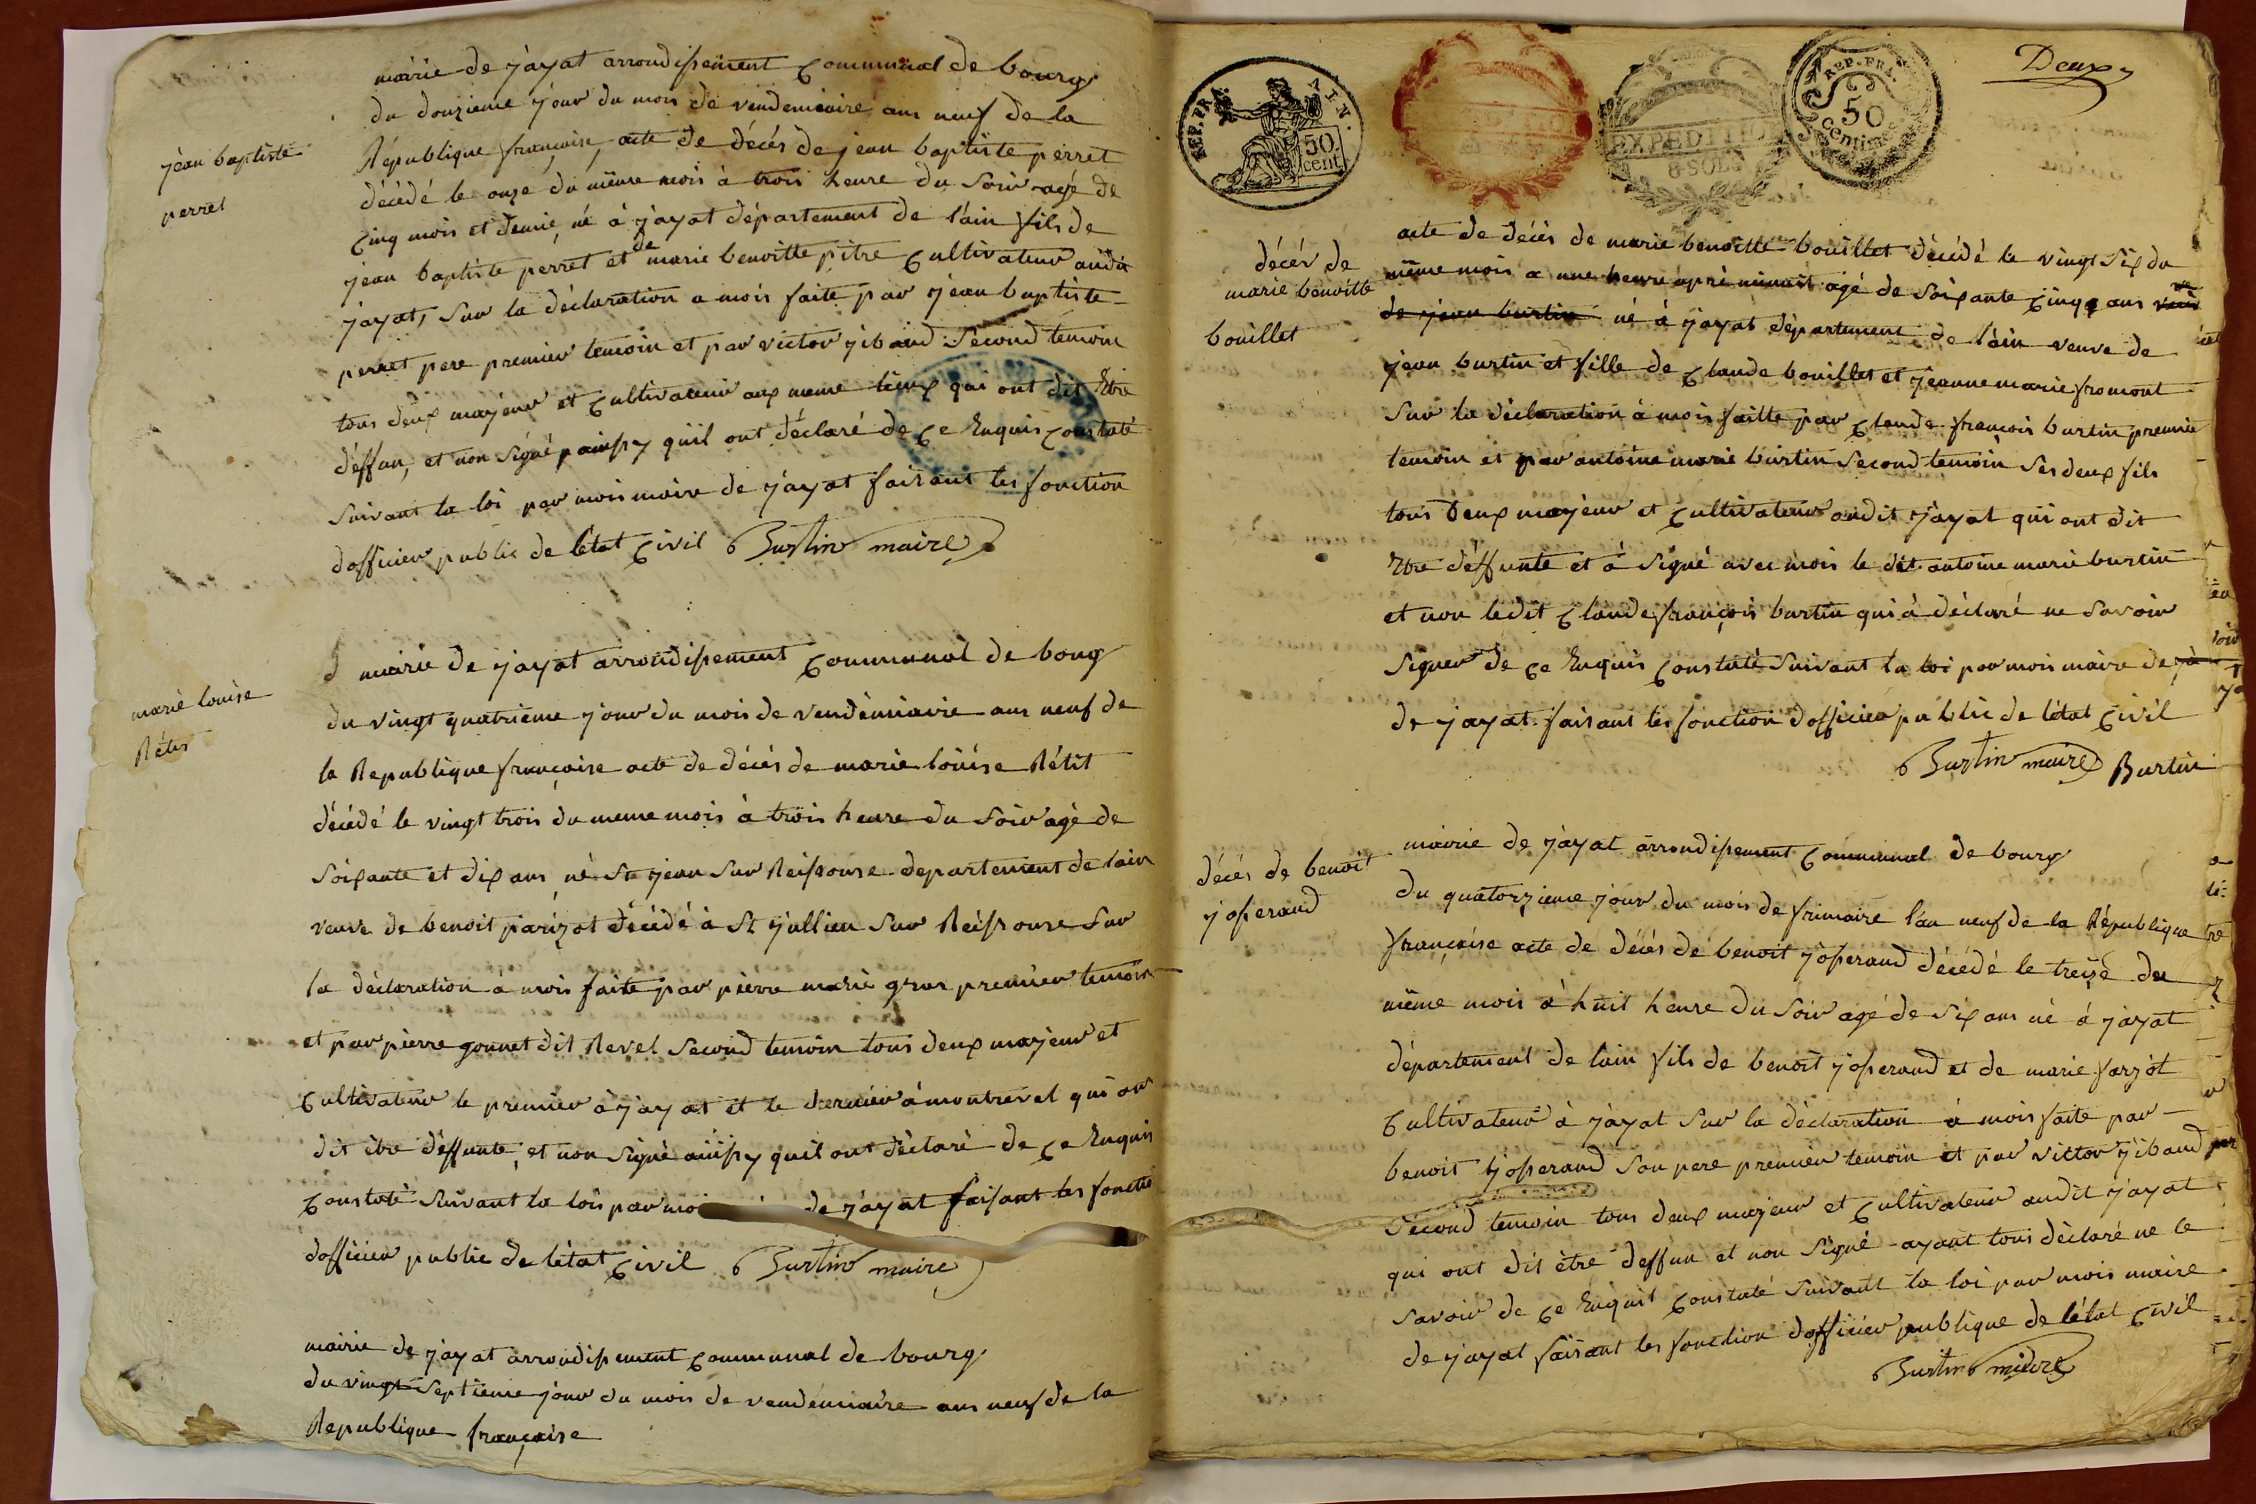 mairie de jayat arrondissement communal de bourg
du douzieme jour du mois de vendemiaire an neuf de la
jean baptiste
perret
République françoise, acte de décés de jean baptiste perret
décédé le onze du même mois à trois heure du soir agé de
cinq mois et demie, né à jayat département de l'ain fils de
jean baptiste perret et de marie benoitte pitre cultivateur audit
jayat, sur la déclaration a mois faite par jean baptiste
perret pere premier temoin et par victor jibaud second temoin
tous deux majeur et cultivateur aux meme lieux qui ont dit Etre
déffun, et non signé painssy qu'il ont déclaré de ce Enquis constaté
suivant la loi par mois maire de jayat faisant les fonction
dofficier public de létat civil Burtin maire
marie louise
Rétis
mairie de jayat arrondissement communal de boug
du vingt quatrieme jour du mois de vendémiaire ans neuf de
la Republique françoise acte de décés de marie loüise Rétit
décédé le vingt trois du meme mois à trois heure du soir agé de
soixante et dix ans, né St jean sur Reissouse departement de lain
veuve de benoit parizot décédé à St jullien sur Reissouse sur
la déclaration à mois faite par pierre marie gros premier temoin
et par pierre gonnet dit Revel second temoin tous deux majeur et
cultivateur le premier à jayat et le dernier à montrevel qui on
dit être déffunte, et non signé ainssy quil ont déclaré de ce Enquis
constaté suivant la lois par moi de jayat faisant les fonctio
dofficier public de létat civil Burtin maire
mairie de jayat arrondissement communal de bourg
du vingt septieme jour du mois de vendémiaire ans neuf de la
Republique françoise
REP. FRA. 50 cent.
EXPEDITIO
8 SOLS
REP. FRA.
50
centimes
Deux
décés de
marie benoitte
bouillet
acte de décés de marie benoitte bouillet décédé le vingt six du
même mois a une heure aprè minuit agé de soixante cinq ans
de jean burtin né à jayat département de l'ain veuve de
jean burtin et fille de claude bouillet et jeanne marie fromont
sur la déclaration à mois faitte par claude françois burtin premier
temoin et par antoine marie burtin second temoin ses deux fils
tous deux majeur et cultivateur audit jayat qui ont dit
Etre déffunte et à signé avec mois le dit antoine marie burtin
et non ledit claude françois burtin qui à déclaré ne savoir
signer de ce Enquis constaté suivant la loi par mois maire de
de jayat faisant les fonction dofficier public de létat civil
Burtin maire Burtin
décés de benoit
josserand
mairie de jayat arrondissement communal de bourg
du quatorzieme jour du mois de frimaire l'an neuf de la République
françoise acte de décés de benoit josserand décédé le treize du
même mois à huit heure du soir agé de six ans né à jayat
département de lain fils de benoit josserand et de marie farjot
cultivateur à jayat sur la déclaration à mois faite par
benoit josserand son pere premier temoin et par victor jibaud
second temoin tous deux majeur et cultivateur audit jayat
qui ont dit être deffun et non signé ayant tous déclaré ne le
savoir de ce Enquist constaté suivant la loi par mois maire
de jayat faisant les fonction dofficier publique de létat civil
Burtin maire